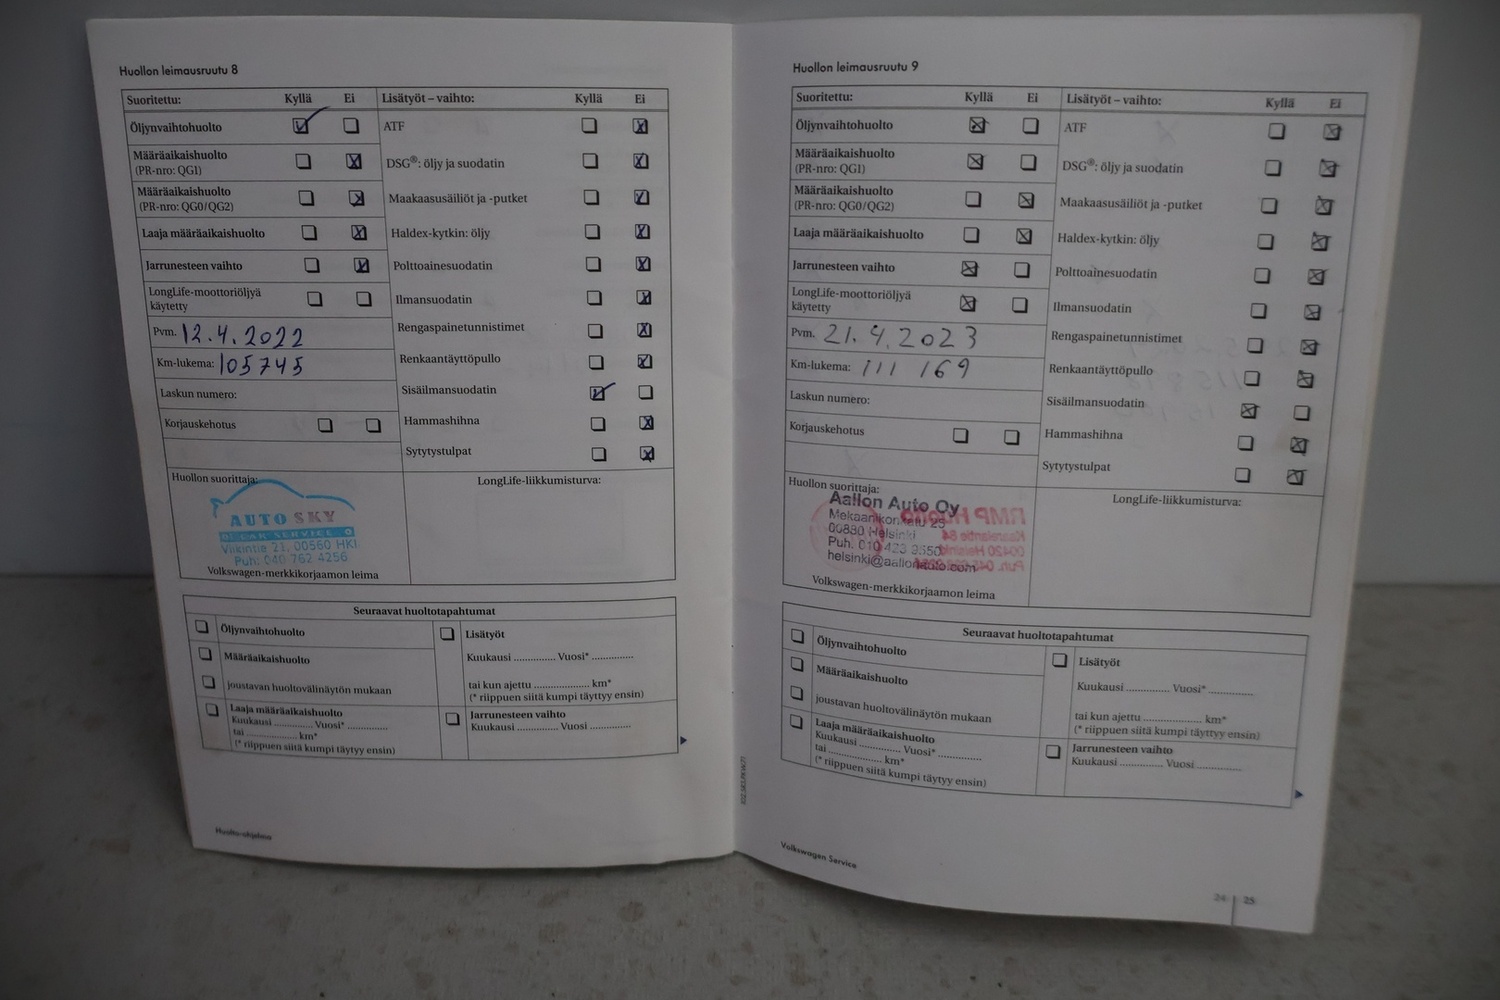 Huollon leimausruutu 8
Suoritettu: Kyllä Ei Lisätyöt – vaihto: Kyllä Ei
Öljynvaihtohuolto
Määräaikaishuolto
(PR-nro: QG1)
Määräaikaishuolto
(PR-nro: QG0/QG2)
Laaja määräaikaishuolto
Jarrunesteen vaihto
LongLife-moottoriöljyä
käytetty
Pvm. 12.4.2022
Km-lukema: 105745
Laskun numero:
Korjauskehotus
ATF
DSG®: öljy ja suodatin
Maakaasusäiliöt ja -putket
Haldex-kytkin: öljy
Polttoainesuodatin
Ilmansuodatin
Rengaspainetunnistimet
Renkaantäyttöpullo
Sisäilmansuodatin
Hammashihna
Sytytystulpat
Huollon suorittaja:
AUTO SKY
CAR SERVICE
Viikintie 21, 00560 HKI
Puh: 040 762 4256
Volkswagen-merkkikorjaamon leima
LongLife-liikkumisturva:
Seuraavat huoltotapahtumat
Öljynvaihtohuolto
Määräaikaishuolto
joustavan huoltovälinäytön mukaan
Laaja määräaikaishuolto
Kuukausi .............. Vuosi* ..............
tai .................... km*
(* riippuen siitä kumpi täytyy ensin)
Lisätyöt
Kuukausi .............. Vuosi* ..............
tai kun ajettu .................... km*
(* riippuen siitä kumpi täyttyy ensin)
Jarrunesteen vaihto
Kuukausi .............. Vuosi ..............
Huolto-ohjelma
Huollon leimausruutu 9
Suoritettu: Kyllä Ei Lisätyöt – vaihto: Kyllä Ei
Öljynvaihtohuolto
Määräaikaishuolto
(PR-nro: QG1)
Määräaikaishuolto
(PR-nro: QG0/QG2)
Laaja määräaikaishuolto
Jarrunesteen vaihto
LongLife-moottoriöljyä
käytetty
Pvm. 21.4.2023
Km-lukema: 111 169
Laskun numero:
Korjauskehotus
ATF
DSG®: öljy ja suodatin
Maakaasusäiliöt ja -putket
Haldex-kytkin: öljy
Polttoainesuodatin
Ilmansuodatin
Rengaspainetunnistimet
Renkaantäyttöpullo
Sisäilmansuodatin
Hammashihna
Sytytystulpat
Huollon suorittaja:
Aallon Auto Oy
Mekaanikonkatu 23
00880 Helsinki
Puh. 010 423 3550
helsinki@aallonauto.com
RMP Huolto
Volkswagen-merkkikorjaamon leima
LongLife-liikkumisturva:
Seuraavat huoltotapahtumat
Öljynvaihtohuolto
Määräaikaishuolto
joustavan huoltovälinäytön mukaan
Laaja määräaikaishuolto
Kuukausi .............. Vuosi* ..............
tai .................... km*
(* riippuen siitä kumpi täytyy ensin)
Lisätyöt
Kuukausi .............. Vuosi* ..............
tai kun ajettu .................... km*
(* riippuen siitä kumpi täyttyy ensin)
Jarrunesteen vaihto
Kuukausi .............. Vuosi ..............
Volkswagen Service
24 | 25